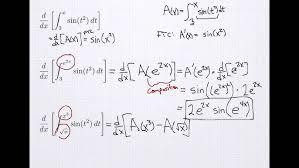 d/dx [∫₃ˣ sin(t²) dt]
= d/dx [A(x)] = sin(x²)
A(x) = ∫₃ˣ sin(t²) dt
FTC: A'(x) = sin(x²)
d/dx [∫₃^(e^(2x)) sin(t²) dt] = d/dx [A(e^(2x))] = A'(e^(2x)) · d/dx [e^(2x)]
composition
= sin((e^(2x))²) · 2e^(2x)
= 2e^(2x) sin(e^(4x))
sin(t²) dt] = d/dx [A(x³) - A(√x)]